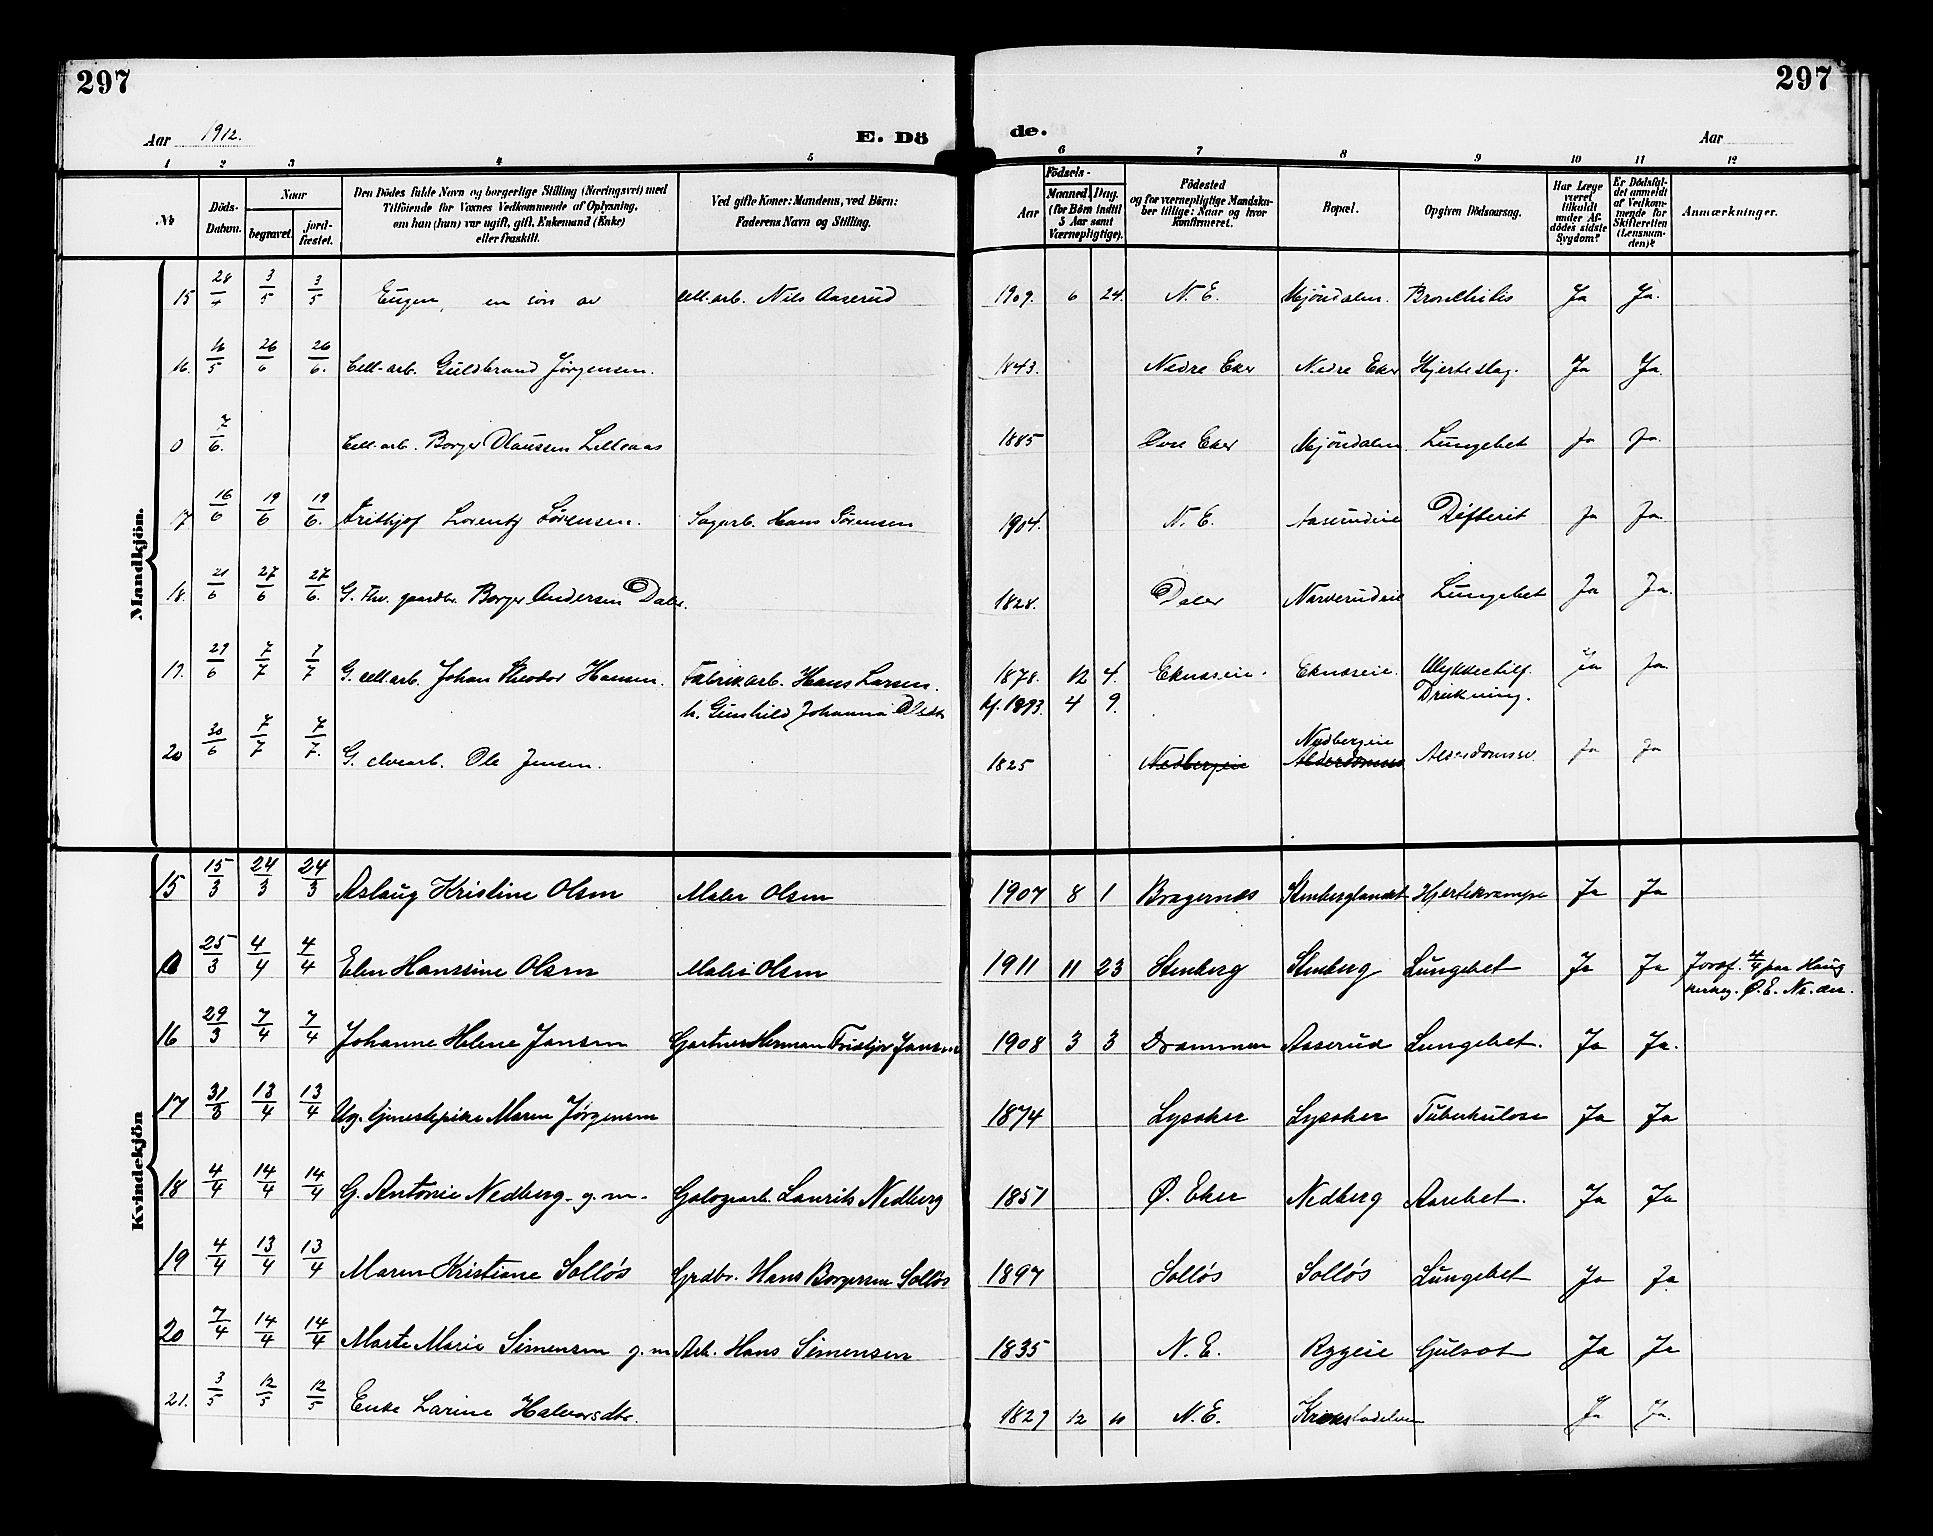 297
297
Aar 1912.
E. Dö
de.
Aar
1 2 3 4 5 6 7 8 9 10 11 12
No
Döds-Datum.
Naar
begravet.
jord-fæstet.
Den Dödes fulde Navn og borgerlige Stilling (Næringsvei) med
Tilföiende for Voxnes Vedkommende af Oplysning,
om han (hun) var ugift, gift, Enkemand (Enke)
eller fraskilt.
Ved gifte Koner: Mandens, ved Börn:
Faderens Navn og Stilling.
Födsels-
Aar
Maaned.
Dag.
(for Börn indtil
5 Aar samt
Værnepligtige).
Födested
og for værnepligtige Mandska-
ber tillige: Naar og hvor
Konfirmeret.
Bopæl.
Opgiven Dödsaarsag.
Har Læge
været
tilkaldt
under Af-
dödes sidste
Sygdom?
Er Dödsfal-
det anmeldt
af Vedkom-
mende for
Skifteretten
(Lensman-
den)?
Anmærkninger.
Mandkjön.
15 28/4 3/5 3/5 Eugen, en sön av cell.arb. Nils Aaserud 1909. 6 24. N. E. Mjöndalen. Bronchitis Ja Ja.
16. 16/5 26/6 26/6. Cell-arb. Guldbrand Jørgensen. 1843. Nedre Eker Nedre Eker Hjerteslag. Ja Ja.
0 7/6. Cell-arb. Borger Olaussen Lilleaas 1885 Övre Eker Mjöndalen Lungebet Ja Ja.
17 16/6 19/6 19/6. Frithjof Lorentz Sørensen. Sagarb. Hans Sörensen 1904. N. E. Aaserudeie Difterit Ja Ja.
18. 21/6 27/6 27/6. G. Fhv. gaardbr. Borger Andersen Daler. 1828. Daler Narverudeie Lungebet Ja Ja.
19. 29/6 7/7 7/7 G. cell arb. Johan Theodor Hansen. Fabrikarb. Hans Larsen. 1878. 12 4. Eknæseie. Eknæseie. Ulykkestilf. Ja Ja
h. Gunhild Johanna Olsdtr kf. 1893. 4 9. Drukning.
20 30/6 7/7 7/7. G. elvearb. Ole Jensen. 1825 Nedbergeie Nedbergeie Alderdomssv. Alderdomssv. Ja Ja
Kvindekjön
15 15/3 24/3 24/3 Aslaug Kristine Olsen Maler Olsen 1907 8 1 Bragernes Stenberglandet Hjertekrampe Ja Ja
0 25/3 4/4 4/4 Elen Hanssine Olsen Maler Olsen 1911 11 23 Stenberg Stenberg Lungebet Ja Ja Jordf. 4/4 paa Haug
kirkeg. Ø. E. No. der.
16 29/3 7/4 7/4 Johanne Helene Jansen Gartner Herman Fritjov Jansen 1908 3 3 Drammen Aaserud Lungebet. Ja Ja.
17 31/3 13/4 13/4 Ug. tjenestepike Maren Jørgensen 1874 Lysaker Lysaker Tuberkulose Ja Ja
18 4/4 14/4 14/4 G. Antonie Nedberg. g. m. Galogearb. Laurits Nedberg 1851 Ø. Eker Nedberg Aarebet. Ja Ja
19 4/4 13/4 13/4 Maren Kristiane Solløs Grdbr. Hans Borgersen Solløs 1897 Solløs Solløs Lungebet Ja Ja
20 7/4 14/4 14/4 Marte Marie Simensen g. m Arb. Hans Simensen 1835 N. E. Ryggeie Gulsot Ja Ja
21. 3/5 12/5 12/5 Enke Larine Halvorsdtr. 1829 12 10 N. E. Krokstadelven Ja Ja.